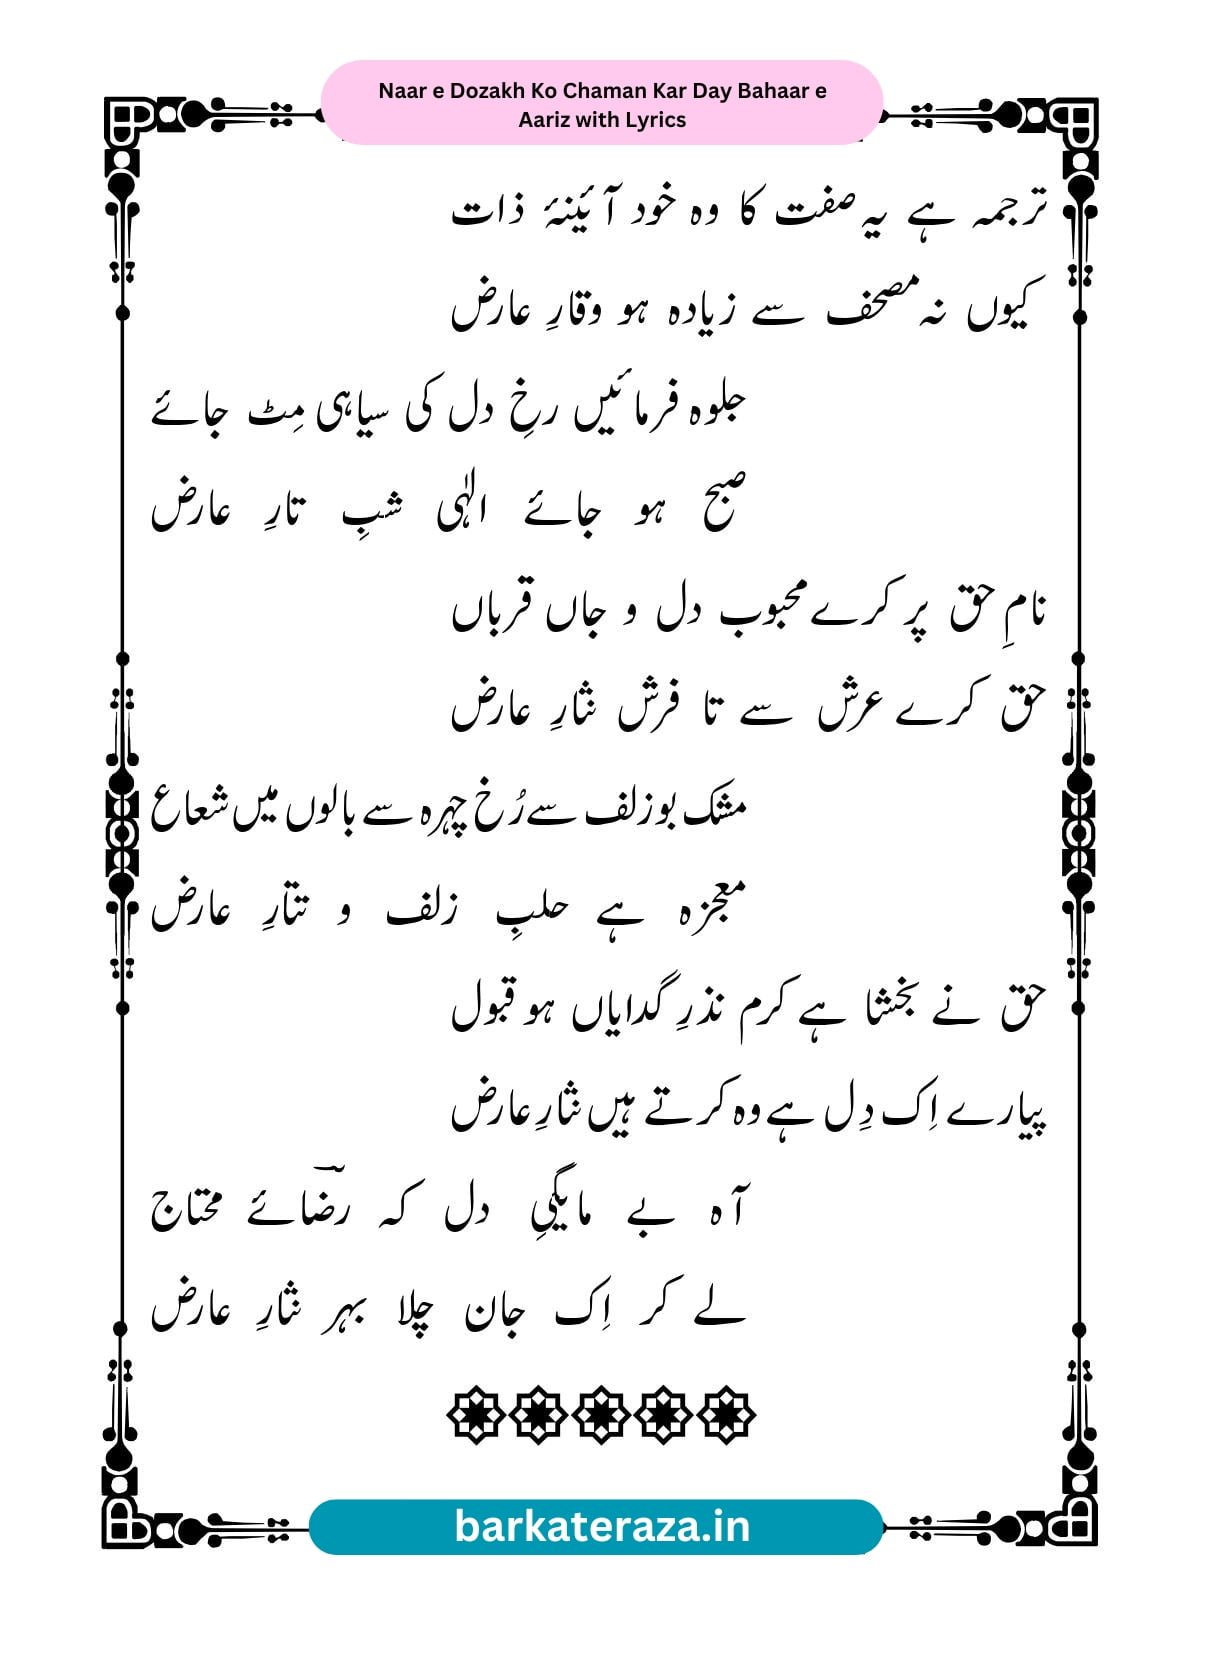 Naar e Dozakh Ko Chaman Kar Day Bahaar e
Aariz with Lyrics
ترجمہ ہے یہ صفت کا وہ خود آئینۂ ذات
کیوں نہ مصحف سے زیادہ ہو وقارِ عارض
جلوہ فرمائیں رخِ دل کی سیاہی مِٹ جائے
صبح ہو جائے الٰہی شبِ تارِ عارض
نامِ حق پر کرے محبوب دل و جاں قرباں
حق کرے عرش سے تا فرش نثارِ عارض
مشک بو زلف سے رُخ چہرہ سے بالوں میں شعاع
معجزہ ہے حلبِ زلف و تتارِ عارض
حق نے بخشا ہے کرم نذرِ گدایاں ہو قبول
پیارے اِک دِل ہے وہ کرتے ہیں نثارِ عارض
آہ بے مایگیِ دل کہ رضؔائے محتاج
لے کر اِک جان چلا بہر نثارِ عارض
barkateraza.in